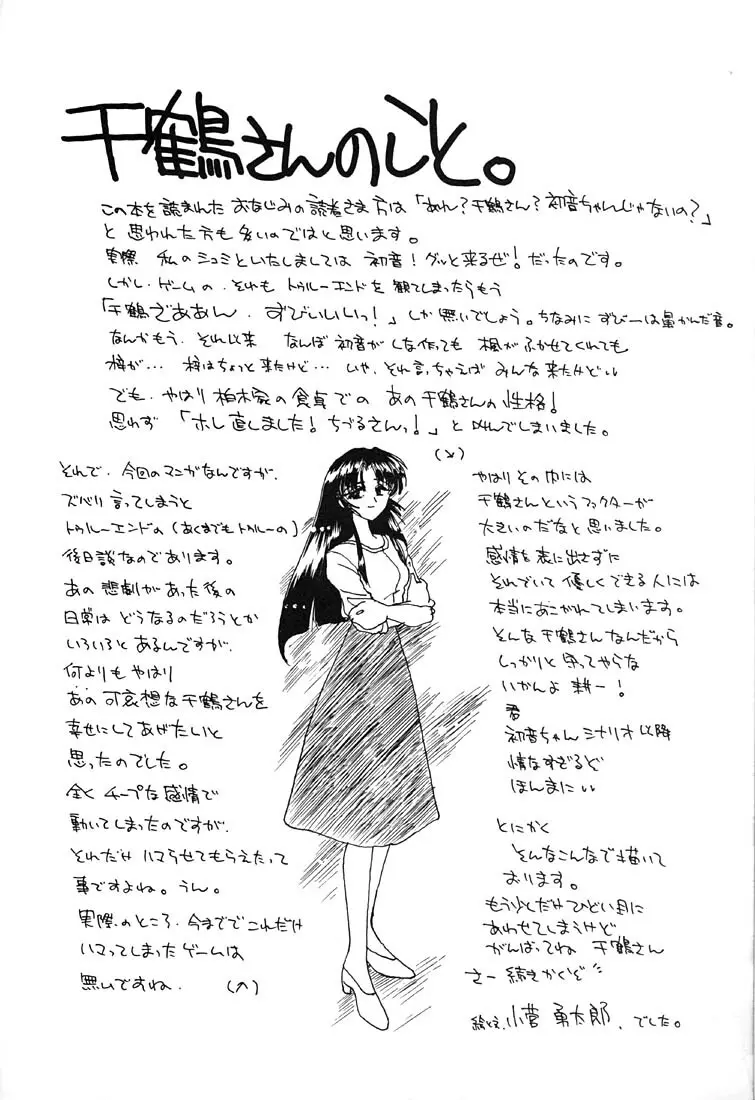 千鶴さんのこと。
この本を読まれた おなじみの読者さま方は「あれ？千鶴さん？初音ちゃんじゃないの？」
と 思われた方も 多いのではと思います。
実際 私のシュミといたしましては 初音！グッと来るぜ！だったのです。
しかし、ゲームの、それも トゥルーエンドを 観てしまったらもう
「千鶴ざああん、ずびいいいっ！」しか無いでしょう。ちなみに ずびーは鼻かんだ音。
なんかもう、それ以来 なんぼ 初音がしな作っても 楓がふかせてくれても
梓が… 梓はちょっと来たけど… いや、それ言っちゃえば みんな来たけどい
でも、やはり 柏木家の食卓での あの千鶴さんの性格！
思わず 「ホレ直しました！ちづるさんっ！」と叫んでしまいました。
それで、今回のマンガなんですが、
ズバリ言ってしまうと
トゥルーエンドの（あくまでもトゥルーの）
後日談なのであります。
あの 悲劇があった後の
日常は どうなるのだろうとか
いろいろと あるんですが、
何よりも やはり
あの 可哀想な千鶴さんを
幸せにしてあげたいと
思ったのでした。
全く チープな感情で
動いてしまったのですが、
それだけ ハマらせてもらえたって
事ですよね。うん。
実際のところ、今まで これだけ
ハマってしまったゲームは
無いですね。
やはり その中には
千鶴さんというファクターが
大きいのだなと 思いました。
感情を表に出さずに
それでいて 優しくできる人には
本当にあこがれてしまいます。
そんな千鶴さんなんだから
しっかりと 守ってやらな
いかんよ 耕一！
君
初音ちゃんシナリオ以降
情なすぎるど
ほんまにい
とにかく
そんなこんなで描いて
おります。
もう少しだけひどい目に
あわせてしまうけど
がんばってね 千鶴さん
さー 続きかくぞ
絵と文、小菅 勇太郎、でした。